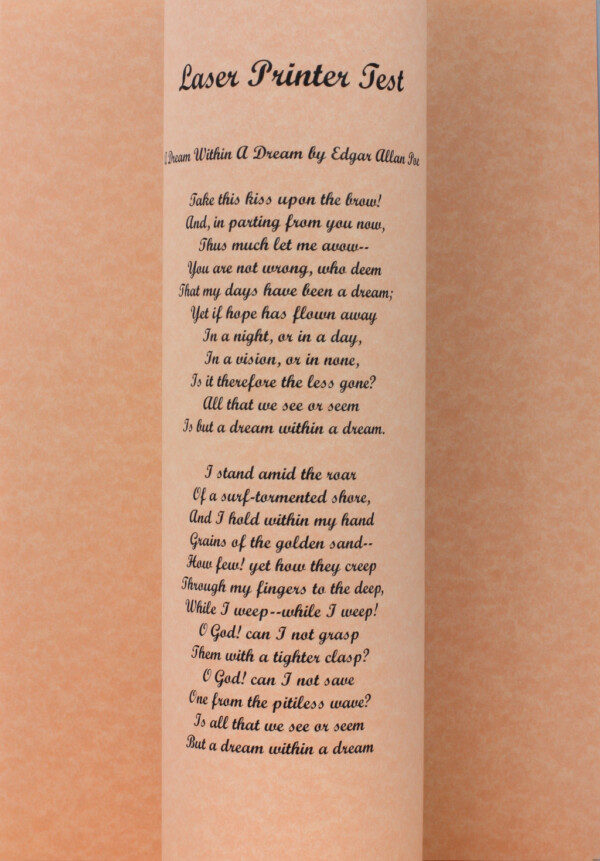 Laser Printer Test
A Dream Within A Dream by Edgar Allan Poe
Take this kiss upon the brow!
And, in parting from you now,
Thus much let me avow--
You are not wrong, who deem
That my days have been a dream;
Yet if hope has flown away
In a night, or in a day,
In a vision, or in none,
Is it therefore the less gone?
All that we see or seem
Is but a dream within a dream.
I stand amid the roar
Of a surf-tormented shore,
And I hold within my hand
Grains of the golden sand--
How few! yet how they creep
Through my fingers to the deep,
While I weep--while I weep!
O God! can I not grasp
Them with a tighter clasp?
O God! can I not save
One from the pitiless wave?
Is all that we see or seem
But a dream within a dream